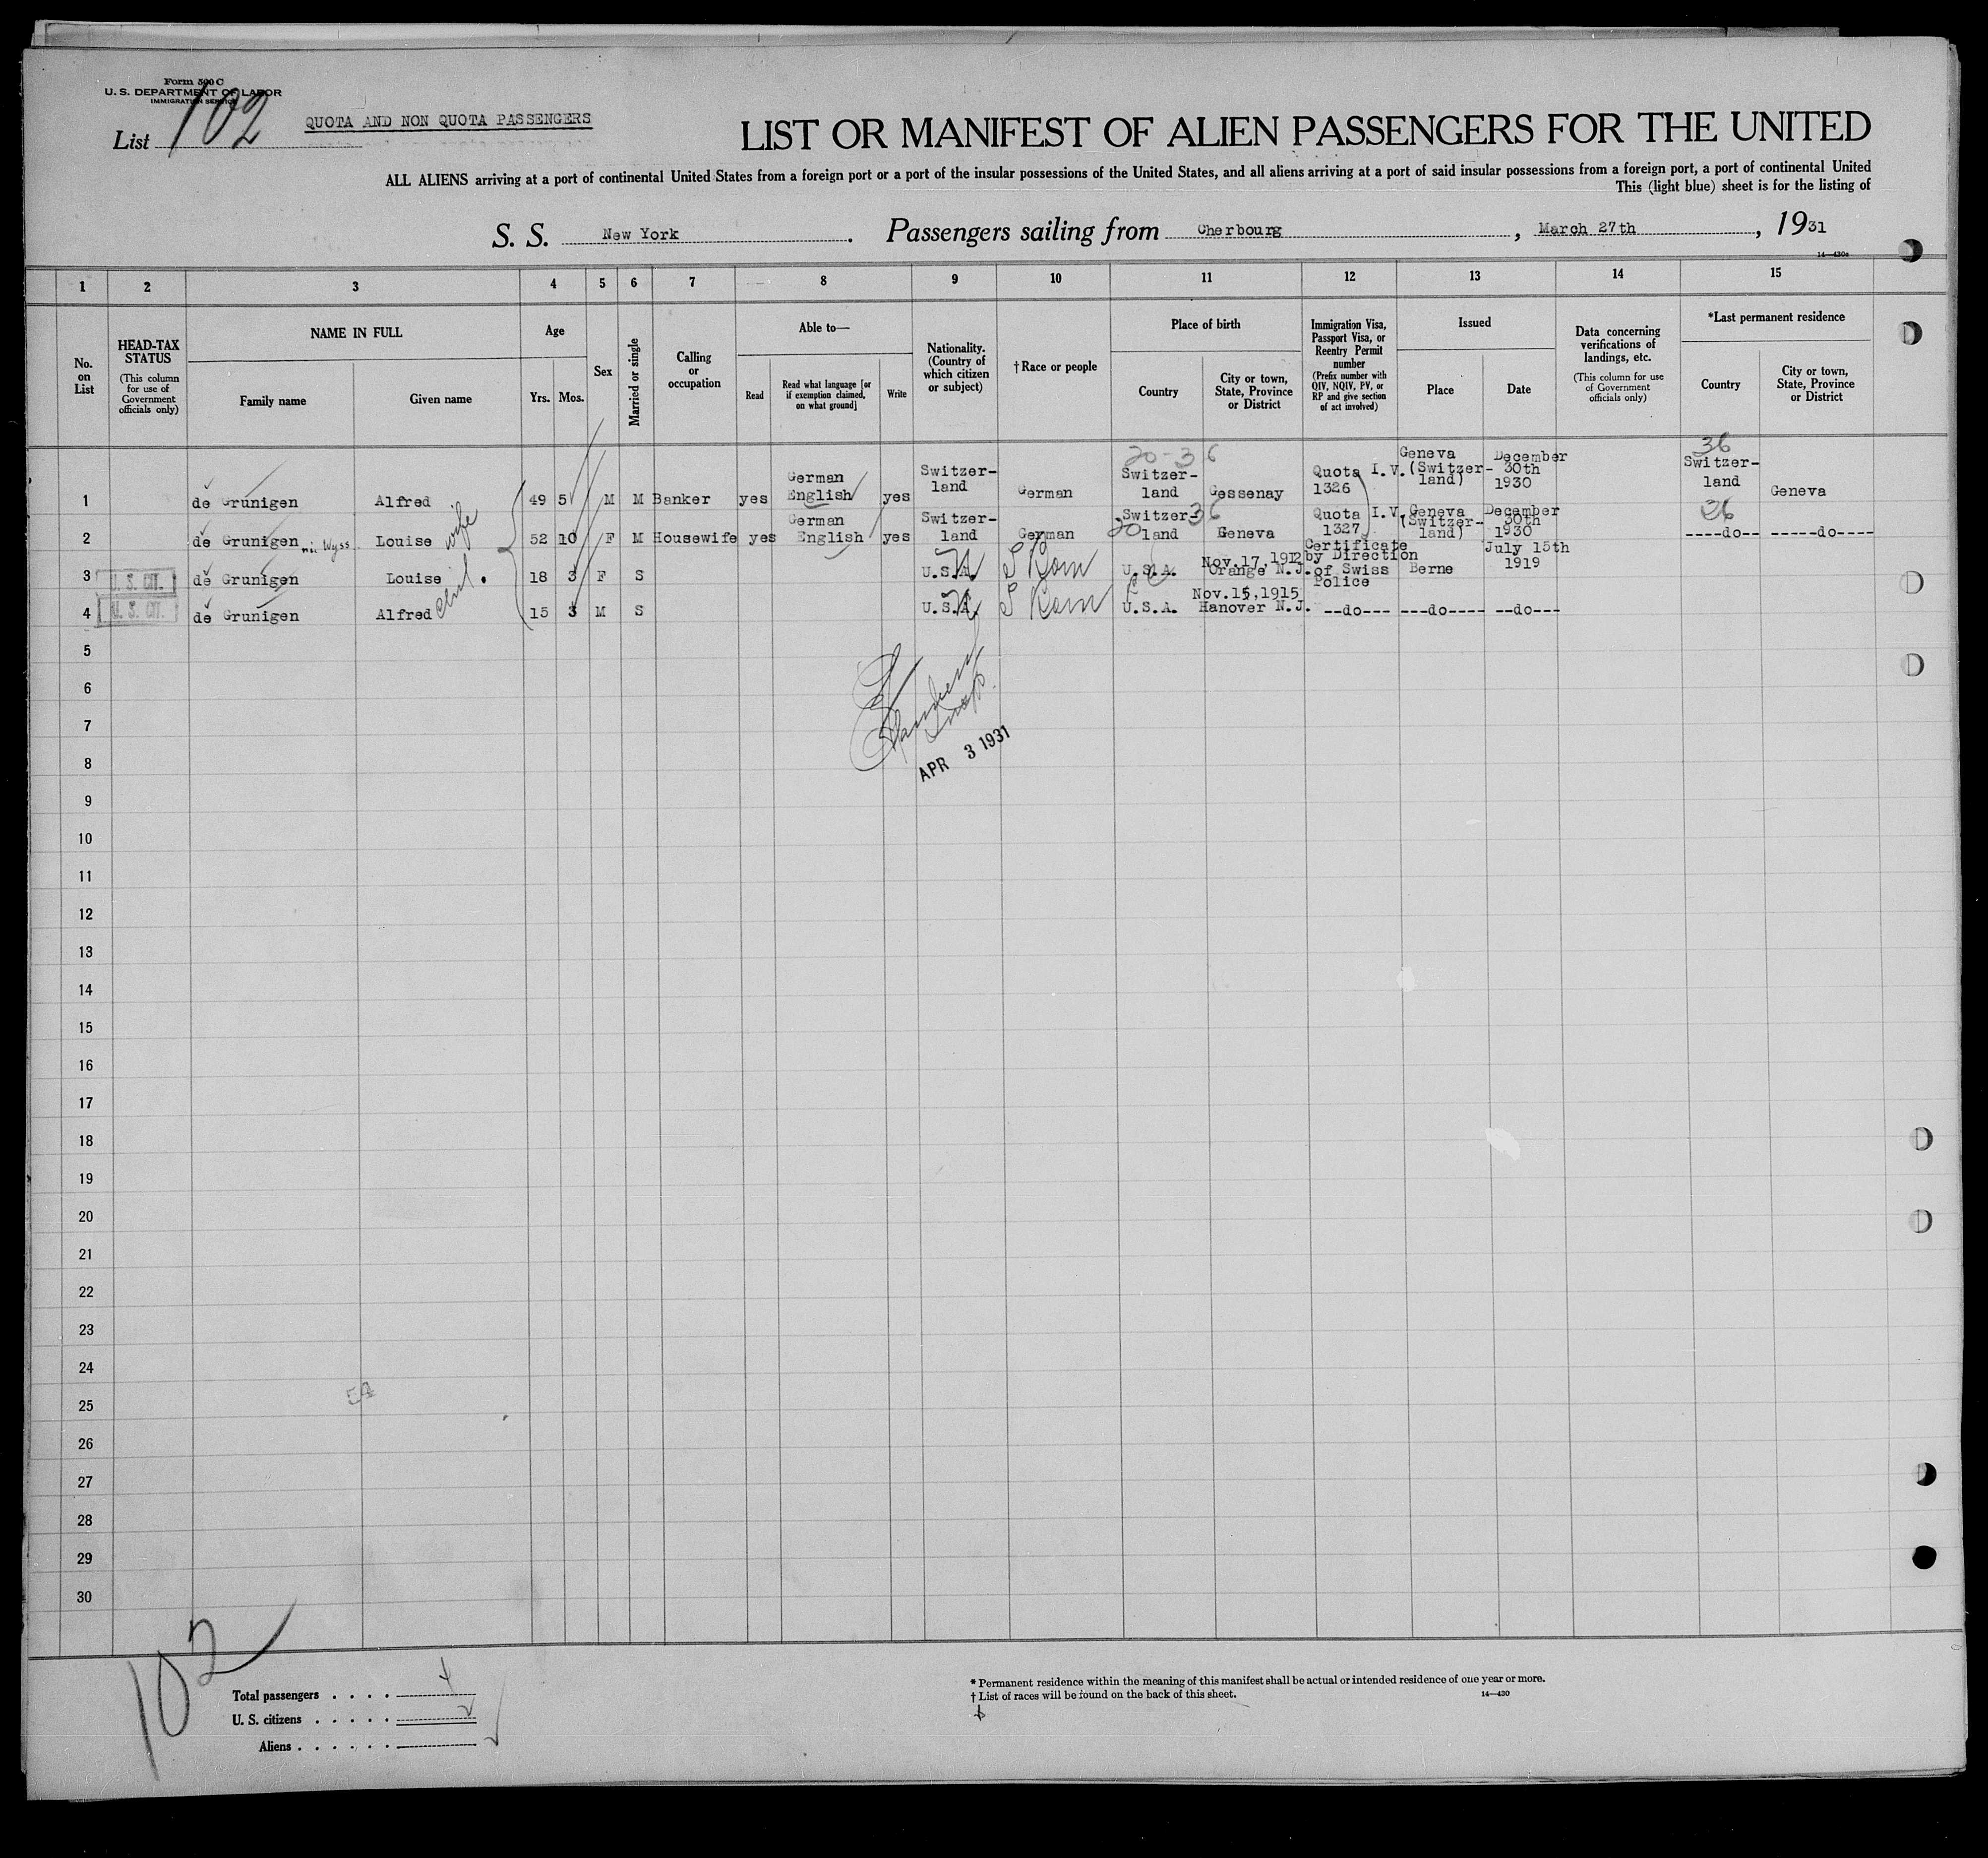 Form 500 C
U. S. DEPARTMENT OF LABOR
IMMIGRATION SERVICE
List 102
QUOTA AND NON QUOTA PASSENGERS
LIST OR MANIFEST OF ALIEN PASSENGERS FOR THE UNITED
ALL ALIENS arriving at a port of continental United States from a foreign port or a port of the insular possessions of the United States, and all aliens arriving at a port of said insular possessions from a foreign port, a port of continental United
This (light blue) sheet is for the listing of
S. S. New York. Passengers sailing from Cherbourg, March 27th, 1931
14—430a
1 2 3 4 5 6 7 8 9 10 11 12 13 14 15
No. on List
HEAD-TAX STATUS
(This column for use of Government officials only)
NAME IN FULL
Family name
Given name
Age
Yrs. Mos.
Sex
Married or single
Calling or occupation
Able to—
Read
Read what language [or if exemption claimed, on what ground]
Write
Nationality. (Country of which citizen or subject)
†Race or people
Place of birth
Country
City or town, State, Province or District
Immigration Visa, Passport Visa, or Reentry Permit number
(Prefix number with QIV, NQIV, PV, or RP and give section of act involved)
Issued
Place
Date
Data concerning verifications of landings, etc.
(This column for use of Government officials only)
*Last permanent residence
Country
City or town, State, Province or District
20-36
36
1 de Grunigen Alfred 49 5 M M Banker yes German English yes Switzer-land German Switzer-land Gessenay Quota I.V. 1326 Geneva (Switzer-land) December 30th 1930 Switzer-land Geneva
36
20
36
2 de Grunigen née Wyss Louise wife 52 10 F M Housewife yes German English yes Switzer-land German Switzer-land Geneva Quota I.V. 1327 Geneva (Switzer-land) December 30th 1930 ----do-- -----do----
3 U. S. CIT. de Grunigen Louise 18 3 F S U.S.A. U.S.A. Nov.17,1912 Orange N.J. Certificate by Direction of Swiss Police Berne July 15th 1919
4 U. S. CIT. de Grunigen Alfred 15 3 M S U.S.A. U.S.A. Nov.15,1915 Hanover N.J. --do--- ---do---- --do---
5
6
7
8
APR 3 1931
9
10
11
12
13
14
15
16
17
18
19
20
21
22
23
24
54
25
26
27
28
29
30
102
Total passengers . . . .
U. S. citizens . . . . .
Aliens . . . . . .
* Permanent residence within the meaning of this manifest shall be actual or intended residence of one year or more.
† List of races will be found on the back of this sheet.
14—430